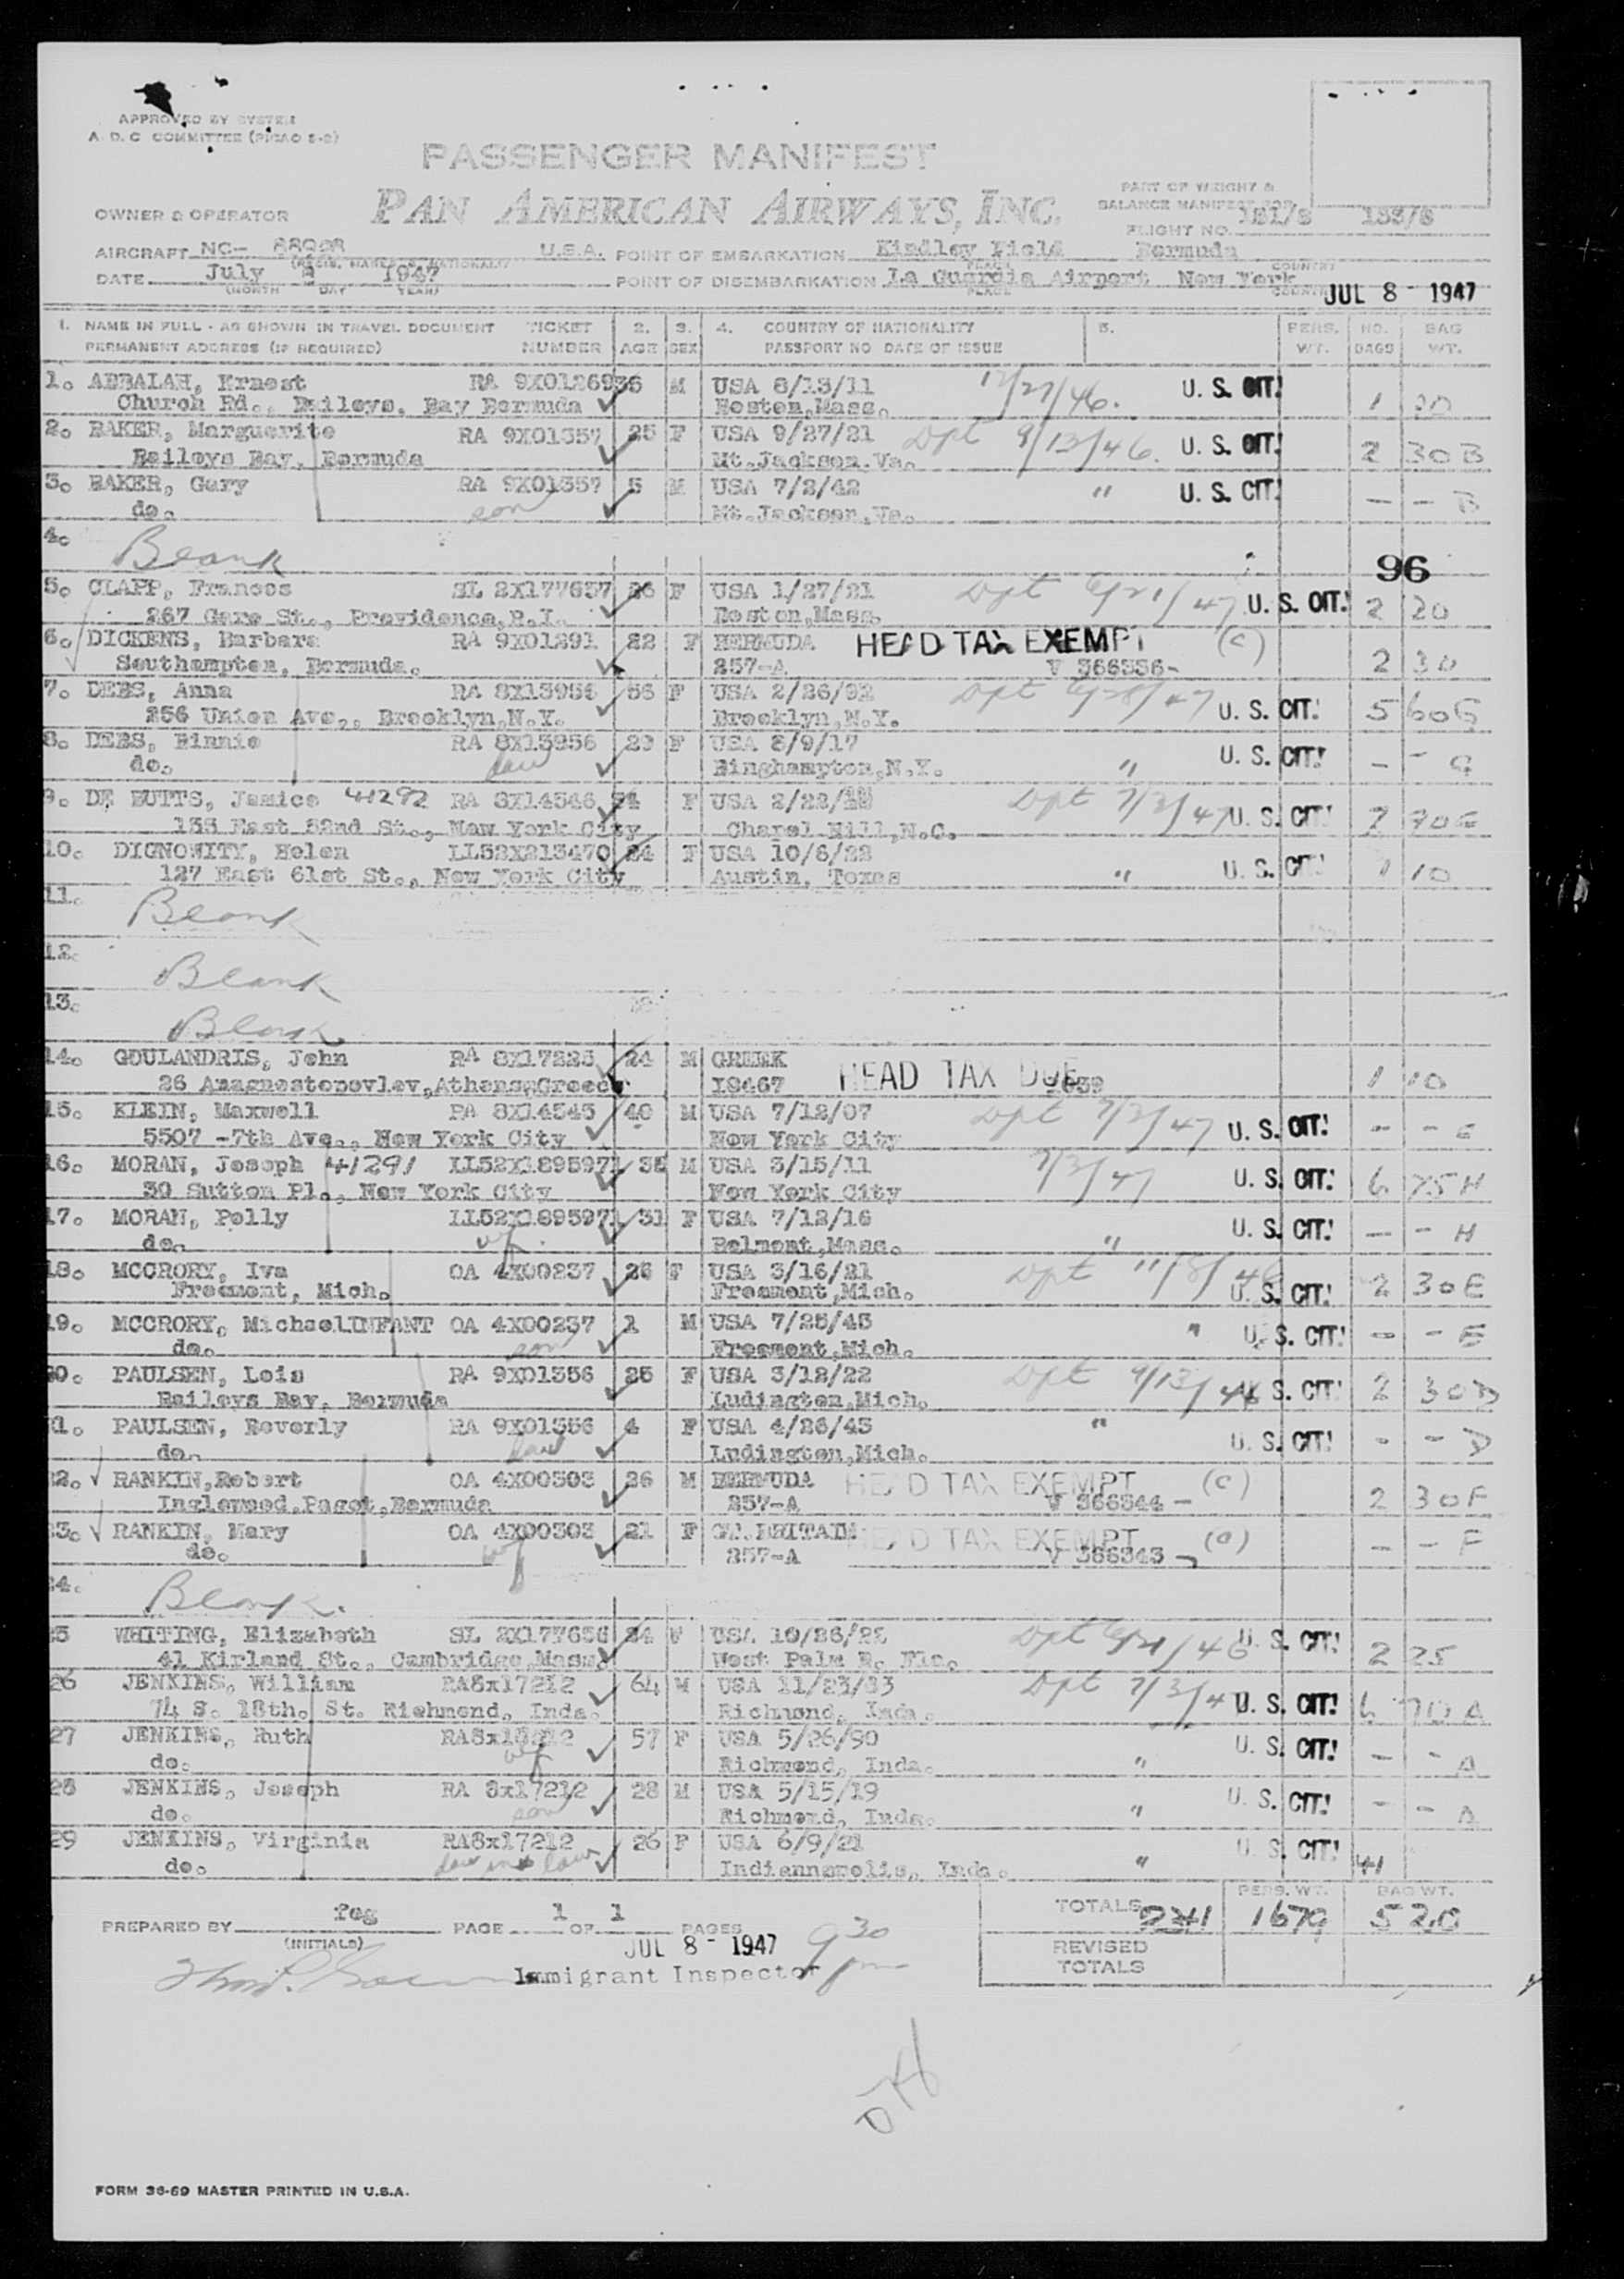 APPROVED BY SYSTEM
A. D. C COMMITTEE
PASSENGER MANIFEST
PAN AMERICAN AIRWAYS, INC.
PART OF WEIGHT &
BALANCE MANIFEST FOR
OWNER & OPERATOR
FLIGHT NO. 131/8 133/8
AIRCRAFT NC- U.S.A. POINT OF EMBARKATION Kindley Field Bermuda
DATE July 1947 POINT OF DISEMBARKATION La Guardia Airport New York
(MONTH DAY YEAR) PLACE COUNTRY
JUL 8 - 1947
1. NAME IN FULL - AS SHOWN IN TRAVEL DOCUMENT TICKET 2. 3. 4. COUNTRY OF NATIONALITY 5. PERS. NO. BAG
PERMANENT ADDRESS (IF REQUIRED) NUMBER AGE SEX PASSPORT NO DATE OF ISSUE WT. BAGS WT.
1. Ernest RA M USA 8/13/11 12/27/46. U. S. CIT!
Church Rd., Baileys, Bay Bermuda Boston,Mass. 1
2. BAKER, Marguerite RA 9X01357 25 F USA 9/27/21 Dpt 9/13/46. U. S. CIT!
Baileys Bay, Bermuda Mt.Jackson.Va. 2 30 B
3. BAKER, Gary RA 9X01357 5 M USA 7/2/42 " U. S. CIT!
do. son Mt.Jackson,Va. - - B
4. Blank
96
5. CLAPP, Frances SL 2X177637 26 F USA 1/27/21 Dpt 6/21/47 U. S. CIT! 2 20
267 St., Providence,R.I. Boston,Mass.
6. DICKENS, Barbara RA 9X01291 22 F BERMUDA HEAD TAX EXEMPT (c)
Southampton, Bermuda. 257-A V 366336- 2 30
7. DEBS, Anna RA 8X13956 56 F USA 2/26/92 Dpt 6/28/47 U. S. CIT! 5 60G
256 Union Ave., Brooklyn,N.Y. Brooklyn,N.Y.
8. DEBS, Binnie RA 8X13956 29 F USA 8/9/17 U. S. CIT!
do. dau Binghampton,N.Y. " - - G
9. DE BUTTS, Janice 41292 RA 8X14546 F USA Dpt 7/3/47 U. S. CIT!
133 East 52nd St., New York City Chapel Hill,N.C.
10. DIGNOWITY, Helen LL52X213470 24 F USA 10/6/22
127 East 61st St., New York City Austin, Texas " U. S. CIT! 1 10
11. Blank
12. Blank
13. Blank
14. GOULANDRIS, John RA 8X17225 24 M GREEK HEAD TAX DUE 1 10
26 Anagnostopovlev,Athens,Greece 18467
15. KLEIN, Maxwell RA 8X14545 40 M USA 7/12/07 Dpt 7/3/47 U. S. CIT! - -
5507 -7th Ave., New York City New York City
16. MORAN, Joseph 41291 LL52X189597 M USA 3/15/11 7/3/47 U. S. CIT! 6 75H
30 Sutton Pl., New York City New York City
17. MORAN, Polly LL52X189597 31 F USA 7/12/16 U. S. CIT! - - H
do. wf. Belmont,Mass. "
18. MCCRORY, Iva OA 4X00237 26 F USA 3/16/21 Dpt 11/8/46 U. S. CIT! 2 30E
Freemont, Mich. Freemont,Mich.
19. MCCRORY, Michael INFANT OA 4X00237 1 M USA 7/25/45 " U. S. CIT! - - E
do. son Freemont,Mich.
20. PAULSEN, Lois RA 9X01356 25 F USA 3/12/22 Dpt 9/13/46 U. S. CIT! 2 30D
Baileys Bay, Bermuda Ludington,Mich.
21. PAULSEN, Beverly RA 9X01356 4 F USA 4/26/43 "
do. dau Ludington,Mich. U. S. CIT! - - D
22. RANKIN,Robert OA 4X00303 26 M BERMUDA HEAD TAX EXEMPT (c)
Inglewood,Paget,Bermuda 257-A V 366344 - 2 30F
23. RANKIN, Mary OA 4X00303 21 F GT.BRITAIN HEAD TAX EXEMPT (a)
do. wf 257-A V 366343 - - - F
24. Blank.
25 WHITING, Elizabeth SL 2X177636 24 F USA 10/26/22 Dpt 6/21/46 U. S. CIT!
41 Kirland St., Cambridge,Mass. West Palm B. Fla. 2 25
26 JENKINS, William RA8x17212 64 M USA 11/23/83 Dpt 7/3/47 U. S. CIT! 6 70 A
74 S. 18th. St. Richmond, Inda. Richmond, Inda.
27 JENKINS, Ruth RA8x17212 57 F USA 5/26/90 U. S. CIT!
do. wf Richmond, Inda. " - - A
28 JENKINS, Joseph RA 8x17212 28 M USA 5/15/19 U. S. CIT!
do. son Richmond, Inda. " - - A
29 JENKINS, Virginia RA8x17212 26 F USA 6/9/21 U. S. CIT!
do. dau in law Indiannapolis, Inda. " 41
PERS. WT. BAG WT.
PREPARED BY feg PAGE 1 OF 1 PAGES TOTALS 1679 520
(INITIALS)
JUL 8 - 1947 9 30 pm
REVISED
TOTALS
Immigrant Inspector
FORM 36-69 MASTER PRINTED IN U.S.A.